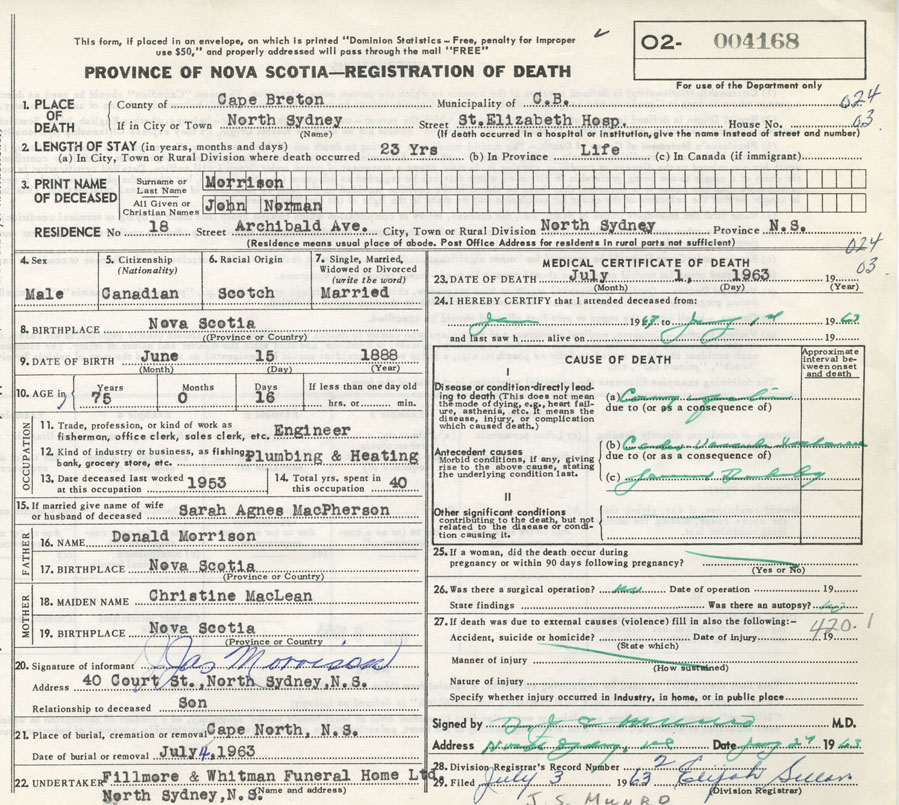 This form, if placed in an envelope, on which is printed "Dominion Statistics – Free, penalty for improper
use $50," and properly addressed will pass through the mail "FREE"
O2- 004168
For use of the Department only
PROVINCE OF NOVA SCOTIA—REGISTRATION OF DEATH
024
03
1. PLACE OF DEATH County of Cape Breton Municipality of C.B.
If in City or Town North Sydney (Name) Street St.Elizabeth Hosp. House No.
(If death occurred in a hospital or institution, give the name instead of street and number)
2. LENGTH OF STAY (in years, months and days)
(a) In City, Town or Rural Division where death occurred 23 Yrs (b) In Province Life (c) In Canada (if immigrant)
3. PRINT NAME OF DECEASED Surname or Last Name Morrison
All Given or Christian Names John Norman
RESIDENCE No 18 Street Archibald Ave. City, Town or Rural Division North Sydney Province N.S.
(Residence means usual place of abode. Post Office Address for residents in rural parts not sufficient)
024
03
4. Sex Male
5. Citizenship (Nationality) Canadian
6. Racial Origin Scotch
7. Single, Married, Widowed or Divorced (write the word) Married
8. BIRTHPLACE Nova Scotia
((Province or Country)
9. DATE OF BIRTH June 15 1888
(Month) (Day) (Year)
10. AGE in Years 75 Months 0 Days 16 If less than one day old hrs. or min.
OCCUPATION
11. Trade, profession, or kind of work as
fisherman, office clerk, sales clerk, etc. Engineer
12. Kind of industry or business, as fishing,
bank, grocery store, etc. Plumbing & Heating
13. Date deceased last worked at this occupation 1953
14. Total yrs. spent in this occupation 40
15. If married give name of wife
or husband of deceased Sarah Agnes MacPherson
FATHER
16. NAME Donald Morrison
17. BIRTHPLACE Nova Scotia
(Province or Country)
MOTHER
18. MAIDEN NAME Christine MacLean
19. BIRTHPLACE Nova Scotia
(Province or Country)
20. Signature of informant Jas Morrison
Address 40 Court St.,North Sydney,N.S.
Relationship to deceased Son
21. Place of burial, cremation or removal Cape North, N.S.
Date of burial or removal July 4, 1963
22. UNDERTAKER Fillmore & Whitman Funeral Home Ltd.
North Sydney,N.S. (Name and address)
MEDICAL CERTIFICATE OF DEATH
23. DATE OF DEATH July 1, 1963 19
(Month) (Day) (Year)
24. I HEREBY CERTIFY that I attended deceased from:
19 to 19 63
and last saw h alive on 19
CAUSE OF DEATH
Approximate interval between onset and death
I
Disease or condition directly lead-
ing to death (This does not mean
the mode of dying, e.g., heart fail-
ure, asthenia, etc. It means the
disease, injury, or complication
which caused death.)
(a)
due to (or as a consequence of)
Antecedent causes
Morbid conditions, if any, giving
rise to the above cause, stating
the underlying condition last.
(b)
due to (or as a consequence of)
(c)
II
Other significant conditions
contributing to the death, but not
related to the disease or condi-
tion causing it.
25. If a woman, did the death occur during
pregnancy or within 90 days following pregnancy?
(Yes or No)
26. Was there a surgical operation? Date of operation 19
State findings Was there an autopsy? no
27. If death was due to external causes (violence) fill in also the following:–
420.1
Accident, suicide or homicide? Date of injury 19
(State which)
Manner of injury
(How sustained)
Nature of injury
Specify whether injury occurred in industry, in home, or in public place
Signed by Munro M.D.
Address North Sydney, NS Date 29 1963
28. Division Registrar's Record Number 2
29. Filed July 3 1963 Elijah
(Division Registrar)
J.S. MUNRO